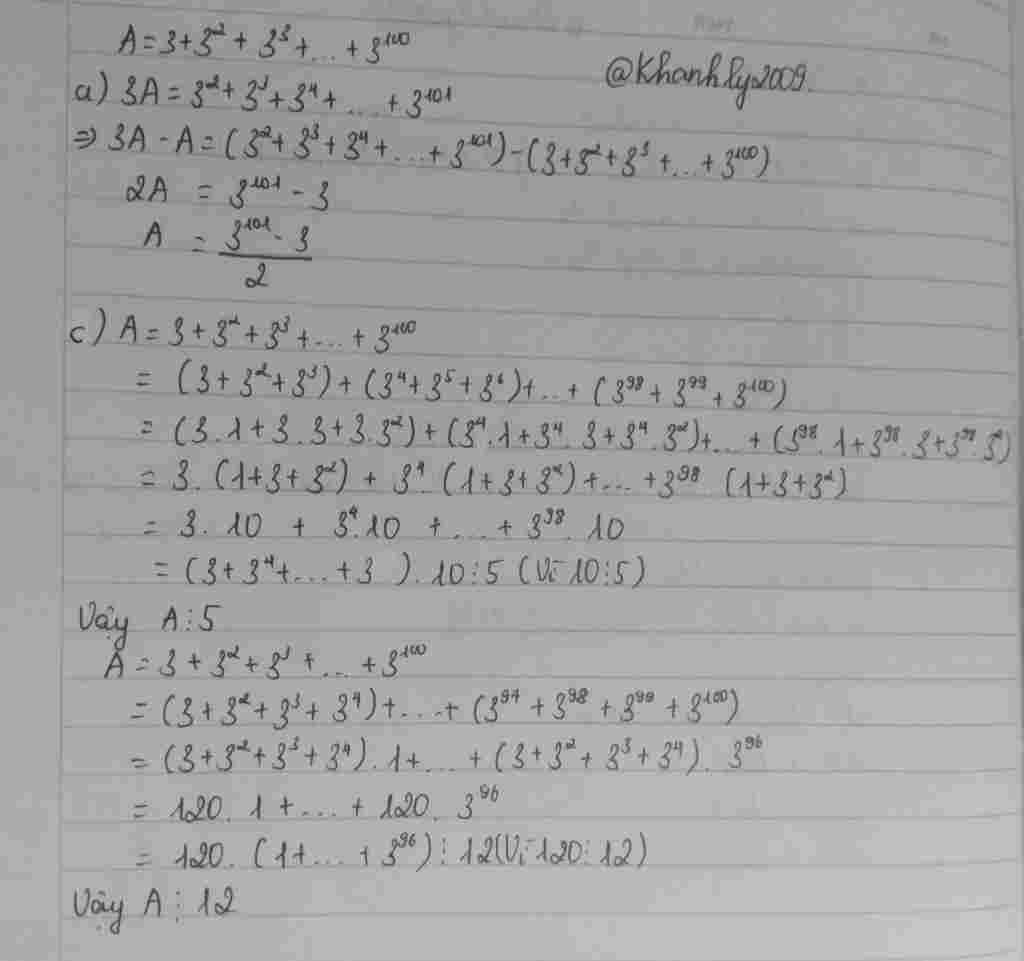 A = 3 + 3² + 3³ + ... + 3¹⁰⁰
@Khanhly2009.
a) 3A = 3² + 3³ + 3⁴ + ... + 3¹⁰¹
=> 3A - A = (3² + 3³ + 3⁴ + ... + 3¹⁰¹) - (3 + 3² + 3³ + ... + 3¹⁰⁰)
2A = 3¹⁰¹ - 3
A = 3¹⁰¹ - 3
2
c) A = 3 + 3² + 3³ + ... + 3¹⁰⁰
= (3 + 3² + 3³) + (3⁴ + 3⁵ + 3⁶) + ... + (3⁹⁸ + 3⁹⁹ + 3¹⁰⁰)
= (3.1 + 3.3 + 3.3²) + (3⁴.1 + 3⁴.3 + 3⁴.3²) + ... + (3⁹⁸.1 + 3⁹⁸.3 + 3⁹⁸.3²)
= 3.(1 + 3 + 3²) + 3⁴.(1 + 3 + 3²) + ... + 3⁹⁸ (1 + 3 + 3²)
= 3.10 + 3⁴.10 + ... + 3⁹⁸.10
= (3 + 3⁴ + ... + 3 ).10 ⋮ 5 (Vì 10 ⋮ 5)
Vậy A ⋮ 5
A = 3 + 3² + 3³ + ... + 3¹⁰⁰
= (3 + 3² + 3³ + 3⁴) + ... + (3⁹⁷ + 3⁹⁸ + 3⁹⁹ + 3¹⁰⁰)
= (3 + 3² + 3³ + 3⁴).1 + ... + (3 + 3² + 3³ + 3⁴).3⁹⁶
= 120.1 + ... + 120.3⁹⁶
= 120.(1 + ... + 3⁹⁶) ⋮ 12 (Vì 120 ⋮ 12)
Vậy A ⋮ 12